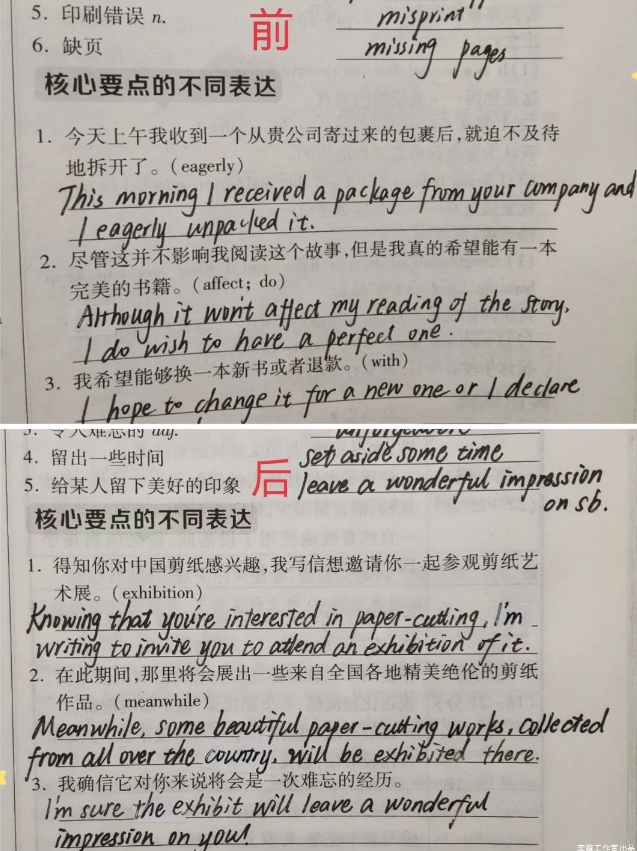 5. 印刷错误 n. misprint
前
6. 缺页 missing pages
核心要点的不同表达
1. 今天上午我收到一个从贵公司寄过来的包裹后,就迫不及待
地拆开了。(eagerly)
This morning I received a package from your company and
I eagerly unpacked it.
2. 尽管这并不影响我阅读这个故事,但是我真的希望能有一本
完美的书籍。(affect; do)
Although it won't affect my reading of the story,
I do wish to have a perfect one.
3. 我希望能够换一本新书或者退款。(with)
I hope to change it for a new one or I declare
3. 令人难忘的 adj.
4. 留出一些时间 set aside some time
后
5. 给某人留下美好的印象 leave a wonderful impression
on sb.
核心要点的不同表达
1. 得知你对中国剪纸感兴趣,我写信想邀请你一起参观剪纸艺
术展。(exhibition)
Knowing that you're interested in paper-cutting, I'm
writing to invite you to attend an exhibition of it.
2. 在此期间,那里将会展出一些来自全国各地精美绝伦的剪纸
作品。(meanwhile)
Meanwhile, some beautiful paper-cutting works, collected
from all over the country, will be exhibited there.
3. 我确信它对你来说将会是一次难忘的经历。
I'm sure the exhibit will leave a wonderful
impression on you!